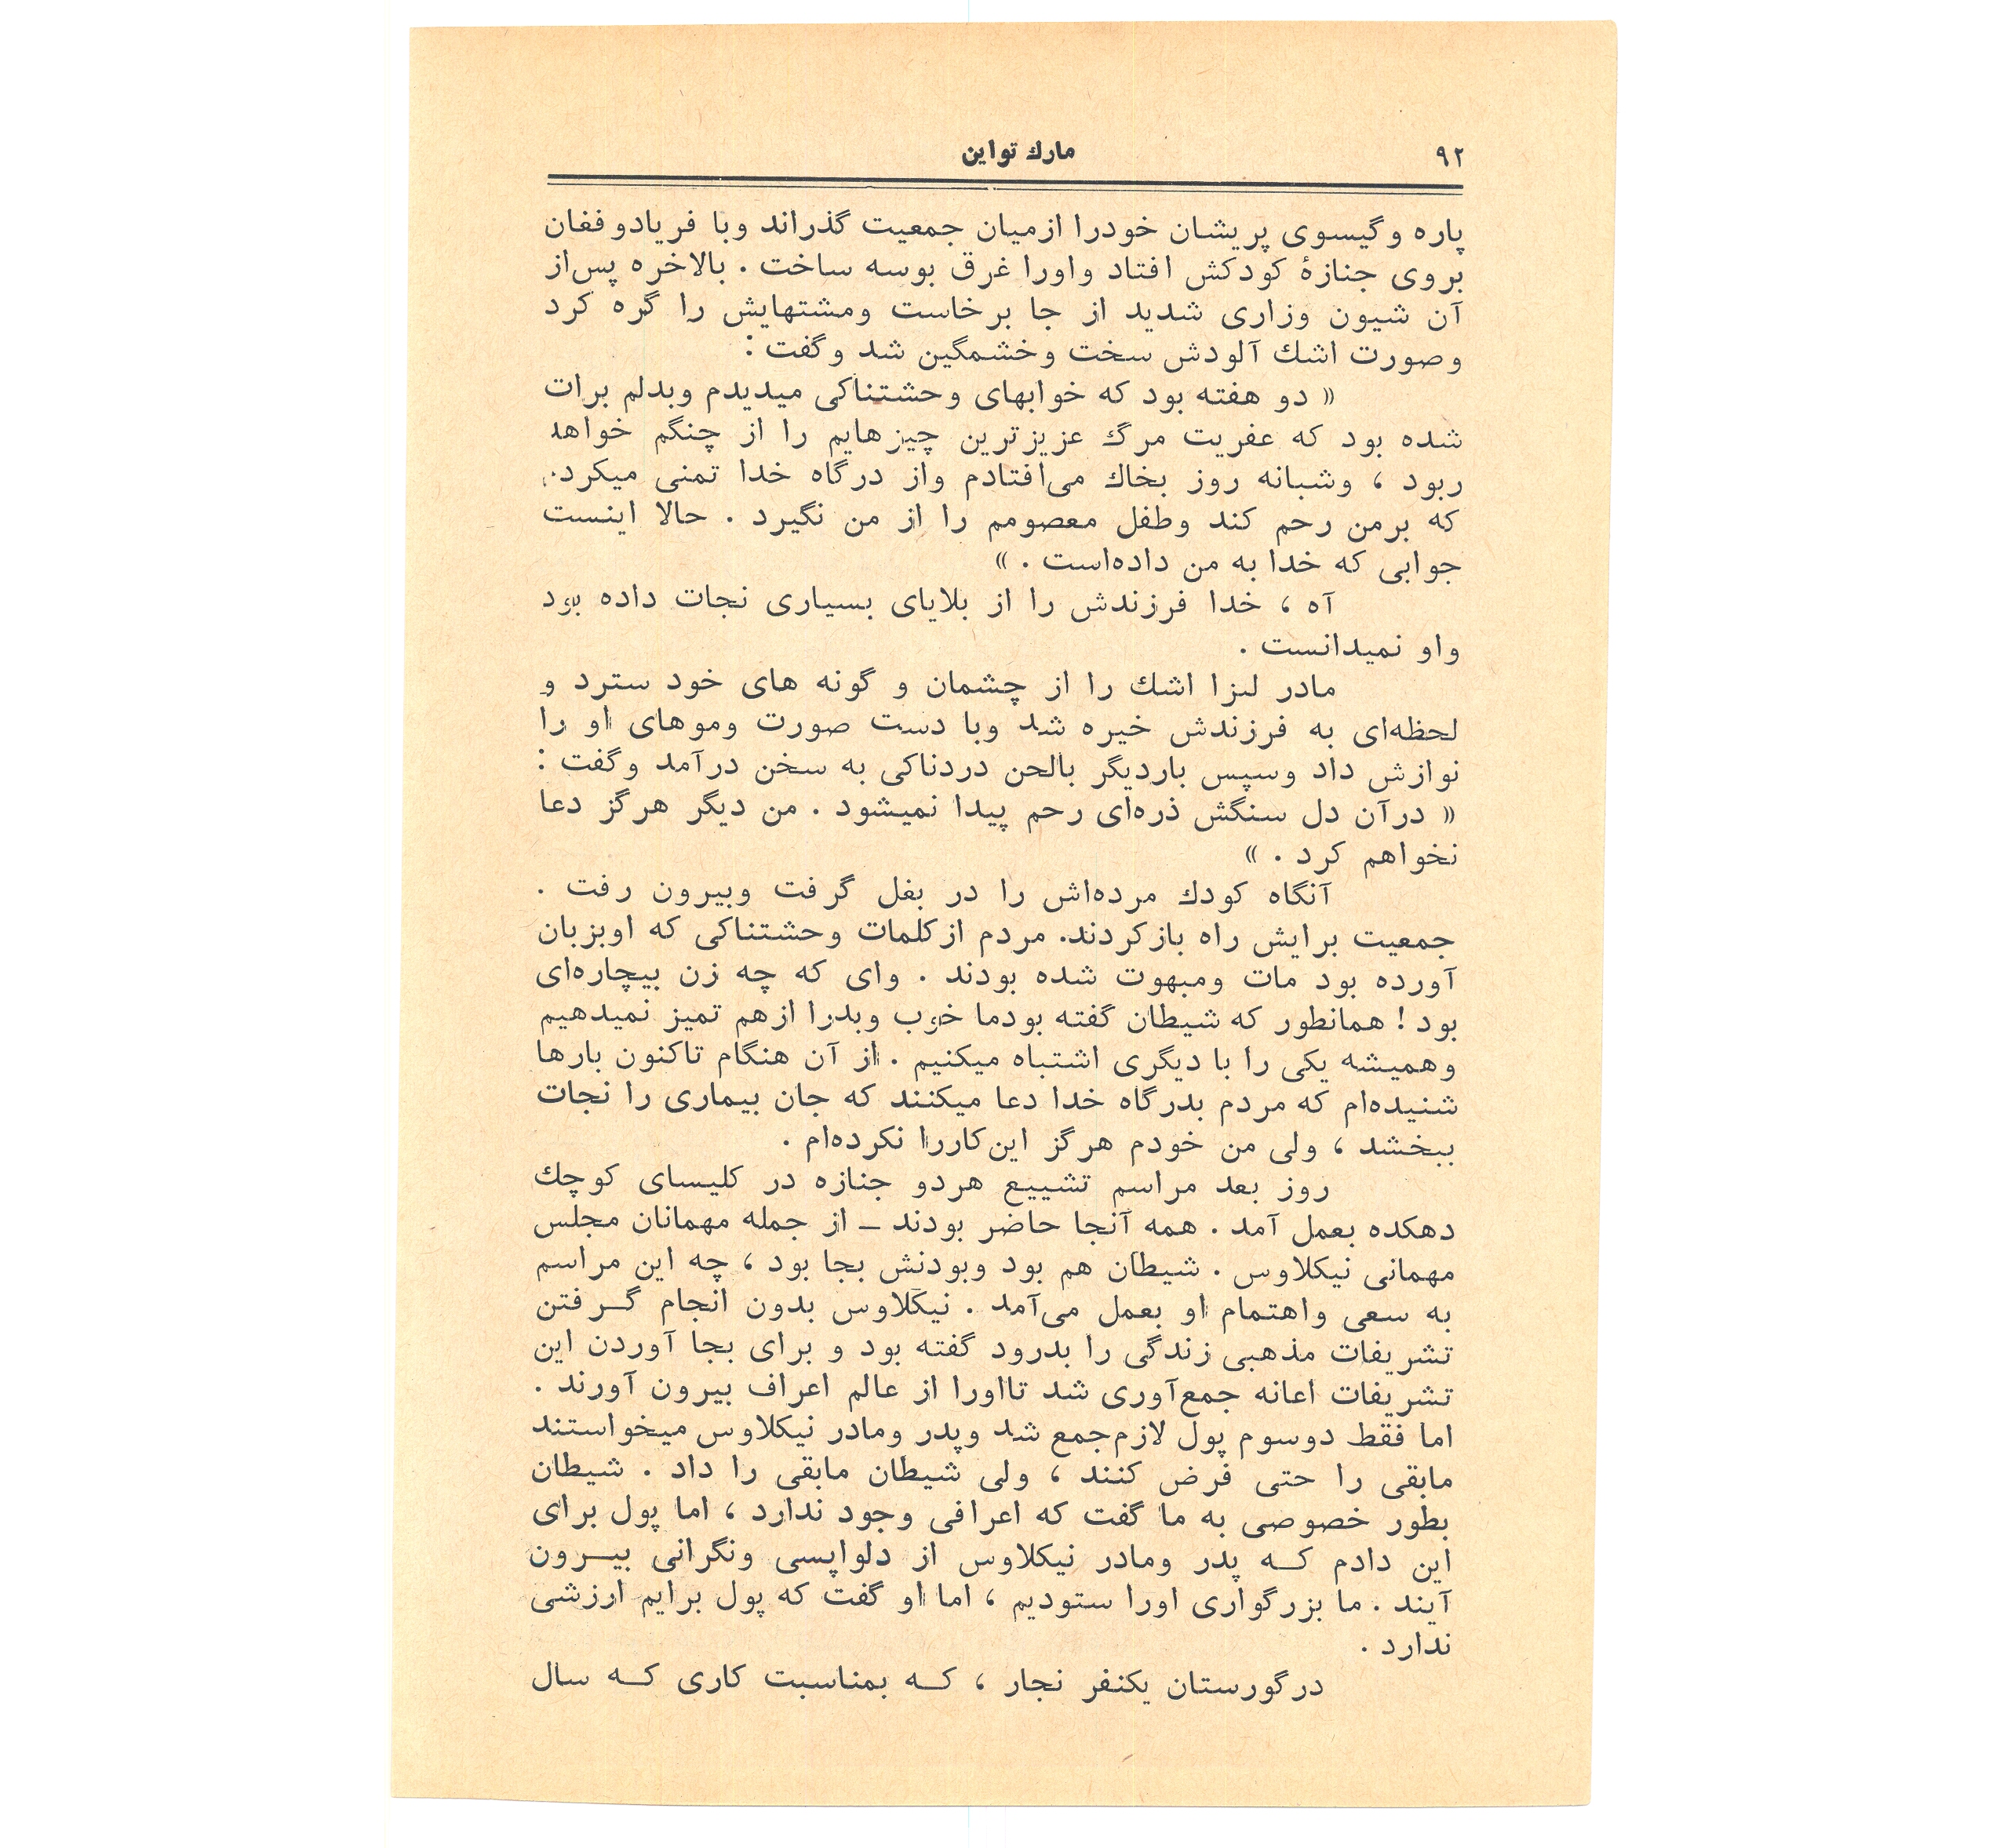 ۹۲
مارك تواین
پاره وگیسوی پریشان خودرا ازمیان جمعیت گذراند وبا فریادوفغان
بروی جنازهٔ کودکش افتاد واورا غرق بوسه ساخت . بالاخره پس‌از
آن شیون وزاری شدید از جا برخاست ومشتهایش را گره کرد
وصورت اشك آلودش سخت وخشمگین شد وگفت :
« دو هفته بود که خوابهای وحشتناکی میدیدم وبدلم برات
شده بود که عفریت مرگ عزیزترین چیزهایم را از چنگم خواهد
ربود ، وشبانه روز بخاك می‌افتادم واز درگاه خدا تمنی میکردم
که برمن رحم کند وطفل معصومم را از من نگیرد . حالا اینست
جوابی که خدا به من داده‌است . »
آه ، خدا فرزندش را از بلایای بسیاری نجات داده بود
واو نمیدانست .
مادر لیزا اشك را از چشمان و گونه های خود سترد و
لحظه‌ای به فرزندش خیره شد وبا دست صورت وموهای او را
نوازش داد وسپس باردیگر بالحن دردناکی به سخن درآمد وگفت :
« درآن دل سنگش ذره‌ای رحم پیدا نمیشود . من دیگر هرگز دعا
نخواهم کرد . »
آنگاه کودك مرده‌اش را در بغل گرفت وبیرون رفت .
جمعیت برایش راه بازکردند. مردم ازکلمات وحشتناکی که اوبزبان
آورده بود مات ومبهوت شده بودند . وای که چه زن بیچاره‌ای
بود ! همانطور که شیطان گفته بودما خوب وبدرا ازهم تمیز نمیدهیم
وهمیشه یکی را با دیگری اشتباه میکنیم . از آن هنگام تاکنون بارها
شنیده‌ام که مردم بدرگاه خدا دعا میکنند که جان بیماری را نجات
ببخشد ، ولی من خودم هرگز این‌کاررا نکرده‌ام .
روز بعد مراسم تشییع هردو جنازه در کلیسای کوچك
دهکده بعمل آمد . همه آنجا حاضر بودند ــ از جمله مهمانان مجلس
مهمانی نیکلاوس . شیطان هم بود وبودنش بجا بود ، چه این مراسم
به سعی واهتمام او بعمل می‌آمد . نیکلاوس بدون انجام گـرفتن
تشریفات مذهبی زندگی را بدرود گفته بود و برای بجا آوردن این
تشریفات اعانه جمع‌آوری شد تااورا از عالم اعراف بیرون آورند .
اما فقط دوسوم پول لازم‌جمع شد وپدر ومادر نیکلاوس میخواستند
مابقی را حتی قرض کنند ، ولی شیطان مابقی را داد . شیطان
بطور خصوصی به ما گفت که اعرافی وجود ندارد ، اما پول برای
این دادم کـه پدر ومادر نیکلاوس از دلواپسی ونگرانی بیـرون
آیند . ما بزرگواری اورا ستودیم ، اما او گفت که پول برایم ارزشی
ندارد .
درگورستان یکنفر نجار ، کـه بمناسبت کاری کـه سال